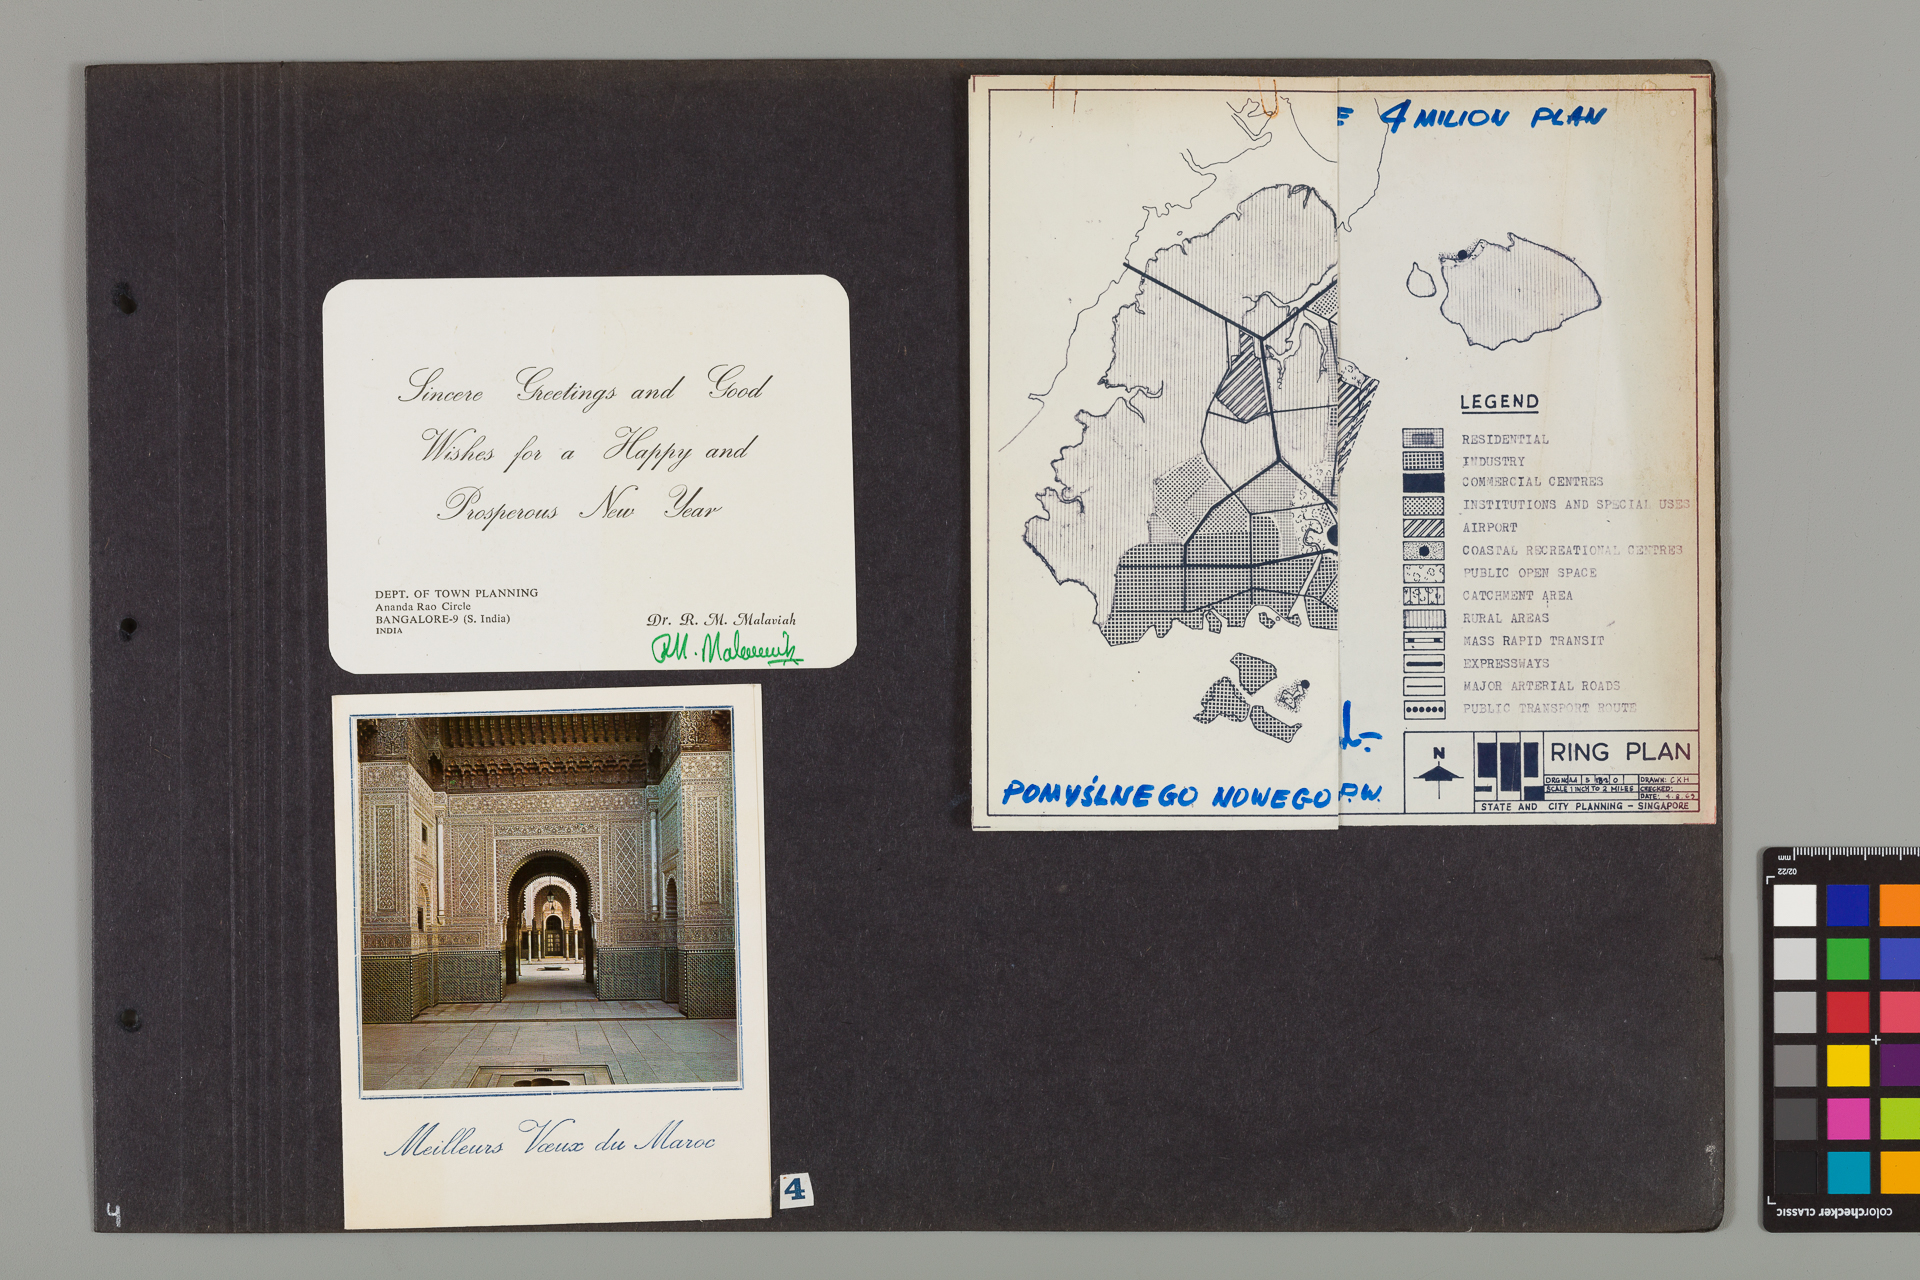 Sincere Greetings and Good
Wishes for a Happy and
Prosperous New Year
DEPT. OF TOWN PLANNING
Ananda Rao Circle
BANGALORE-9 (S. India)
INDIA
Dr. R. M. Malaviah
Meilleurs Vœux du Maroc
4
4
E 4 MILION PLAN
LEGEND
RESIDENTIAL
INDUSTRY
COMMERCIAL CENTRES
INSTITUTIONS AND SPECIAL USES
AIRPORT
COASTAL RECREATIONAL CENTRES
PUBLIC OPEN SPACE
CATCHMENT AREA
RURAL AREAS
MASS RAPID TRANSIT
EXPRESSWAYS
MAJOR ARTERIAL ROADS
PUBLIC TRANSPORT ROUTE
POMYŚLNEGO NOWEGO P.W.
N
RING PLAN
DRAWN: CKH
SCALE 1 INCH TO 2 MILES
CHECKED:
DATE: 4.8.69
STATE AND CITY PLANNING - SINGAPORE
mm
02/22
colorchecker CLASSIC